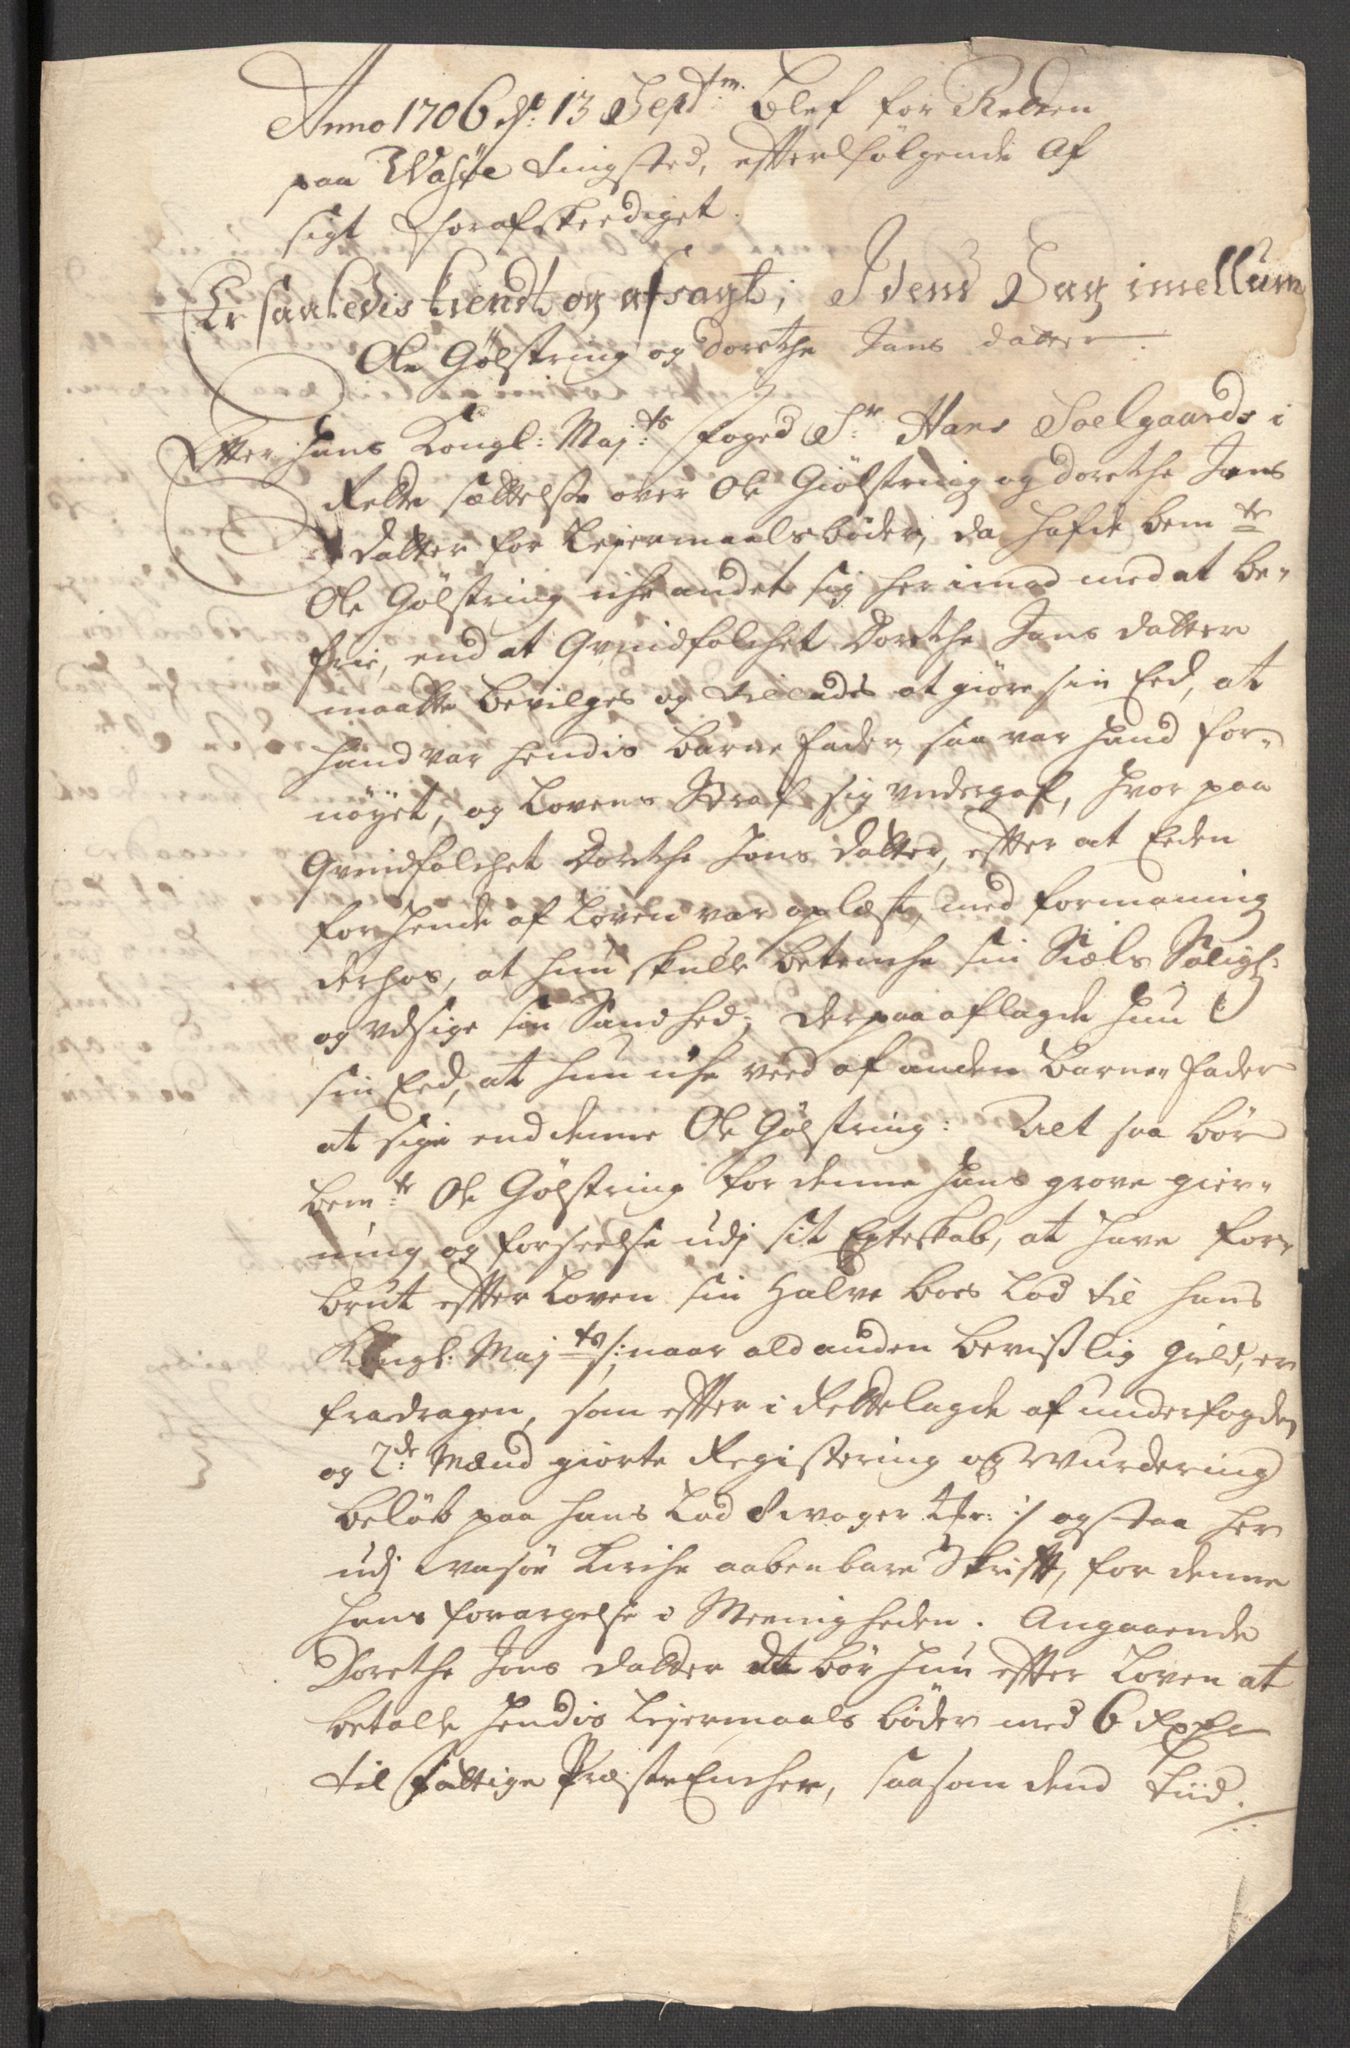 Anno 1706 d: 13 Septm: blef for Retten
paa Wasøe tingsted, effterfølgende Af
sigt forafskeediget.
Er saaledis kiendt og afsagt, i dend Sag imellum
Ole Gølstring og Dorethe Jans datter.
Efter hans Kongl: Maj:ts foged Sr Hans Soelgaards i
Rette sættelse over Ole Giølstring og Dorethe Jans
datter for Lejermaalsbøder, da hafde bem:te
Ole Gølstring iche andet sig her imod med at be-
frie, end at Qvindfolchet Dorethe Jans datter
maatte bevilges og tillades at giøre sin Eed, at
hand var hendis barne fader, saa var hand for-
nøyet, og Lovens Straf sig undergaf, hvor paa
Qvindfolchet Dorethe Jans datter, effter at Eeden
for hende af Loven var oplæst, med formaning
derhos, at hun skulle betenche sin Siæls Saligh:
og udsige sin Sandhed; derpaa aflagde hun
sin Eed, at hun iche veed af anden barne fader
at sige end denne Ole Gølstring: Thi saa bør
bem:te Ole Gølstring for denne hans grove gier-
ning og forseelse udj sit Egteskab, at have for-
brut effter Loven sin Halve boes Lod til hans
Kongl: Maj:ts /: naar ald anden bevislig gield, er
fradragen, som effter i Rettelagde af underfogden
og 2de Mænd giorte Registering og Wurdering
beløb paa hans Lod :/ og staa her
udj Wasøe Kirche aabenbare Skrifft, for denne
hans forargelse i Meenigheden. Angaaende
Dorethe Jans datter da bør hun effter Loven at
betalle hendis Lejermaals bøder med 6
til fattige Præste Encher, saasom dend tiid.